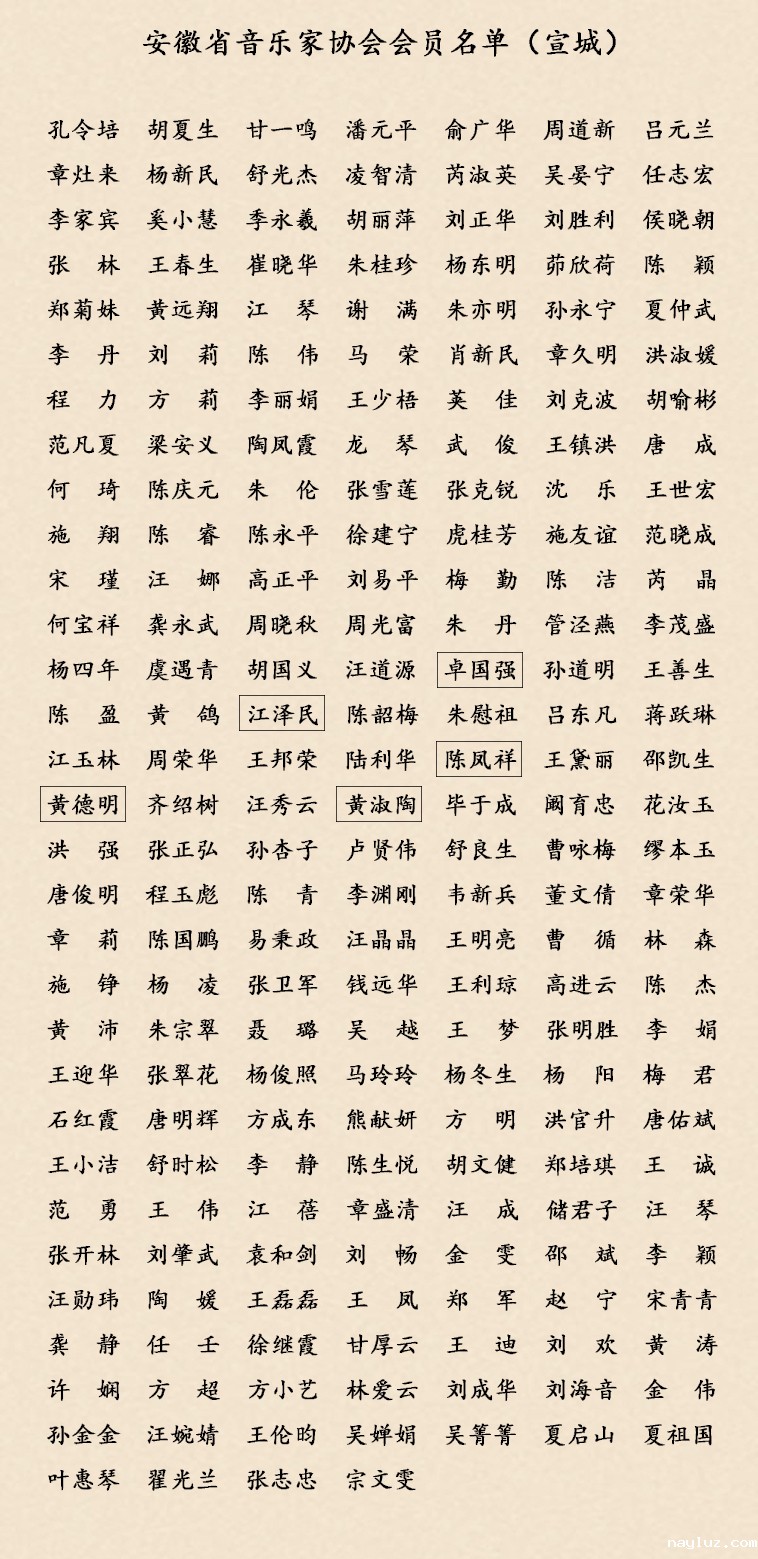 安徽省音乐家协会会员名单（宣城）
孔令培 胡夏生 甘一鸣 潘元平 俞广华 周道新 吕元兰
章灶来 杨新民 舒光杰 凌智清 芮淑英 吴晏宁 任志宏
李家宾 奚小慧 季永羲 胡丽萍 刘正华 刘胜利 侯晓朝
张林 王春生 崔晓华 朱桂珍 杨东明 茆欣荷 陈颖
郑菊妹 黄远翔 江琴 谢满 朱亦明 孙永宁 夏仲武
李丹 刘莉 陈伟 马荣 肖新民 章久明 洪淑媛
程力 方莉 李丽娟 王少梧 英佳 刘克波 胡喻彬
范凡夏 梁安义 陶凤霞 龙琴 武俊 王镇洪 唐成
何琦 陈庆元 朱伦 张雪莲 张克锐 沈乐 王世宏
施翔 陈睿 陈永平 徐建宁 虎桂芳 施友谊 范晓成
宋瑾 汪娜 高正平 刘易平 梅勤 陈洁 芮晶
何宝祥 龚永武 周晓秋 周光富 朱丹 管泾燕 李茂盛
杨四年 虞遇青 胡国义 汪道源 卓国强 孙道明 王善生
陈盈 黄鸽 江泽民 陈韶梅 朱慰祖 吕东凡 蒋跃琳
江玉林 周荣华 王邦荣 陆利华 陈凤祥 王黛丽 邵凯生
黄德明 齐绍树 汪秀云 黄淑陶 毕于成 阚育忠 花汝玉
洪强 张正弘 孙杏子 卢贤伟 舒良生 曹咏梅 缪本玉
唐俊明 程玉彪 陈青 李渊刚 韦新兵 董文倩 章荣华
章莉 陈国鹏 易秉政 汪晶晶 王明亮 曹循 林森
施铮 杨凌 张卫军 钱远华 王利琼 高进云 陈杰
黄沛 朱宗翠 聂璐 吴越 王梦 张明胜 李娟
王迎华 张翠花 杨俊照 马玲玲 杨冬生 杨阳 梅君
石红霞 唐明辉 方成东 熊献妍 方明 洪官升 唐佑斌
王小洁 舒时松 李静 陈生悦 胡文健 郑培琪 王诚
范勇 王伟 江蓓 章盛清 汪成 储君子 汪琴
张开林 刘肇武 袁和剑 刘畅 金雯 邵斌 李颖
汪勋玮 陶媛 王磊磊 王凤 郑军 赵宁 宋青青
龚静 任壬 徐继霞 甘厚云 王迪 刘欢 黄涛
许娴 方超 方小艺 林爱云 刘成华 刘海音 金伟
孙金金 汪婉婧 王伦昀 吴婵娟 吴箐箐 夏启山 夏祖国
叶惠琴 翟光兰 张志忠 宗文雯
nayluz.com